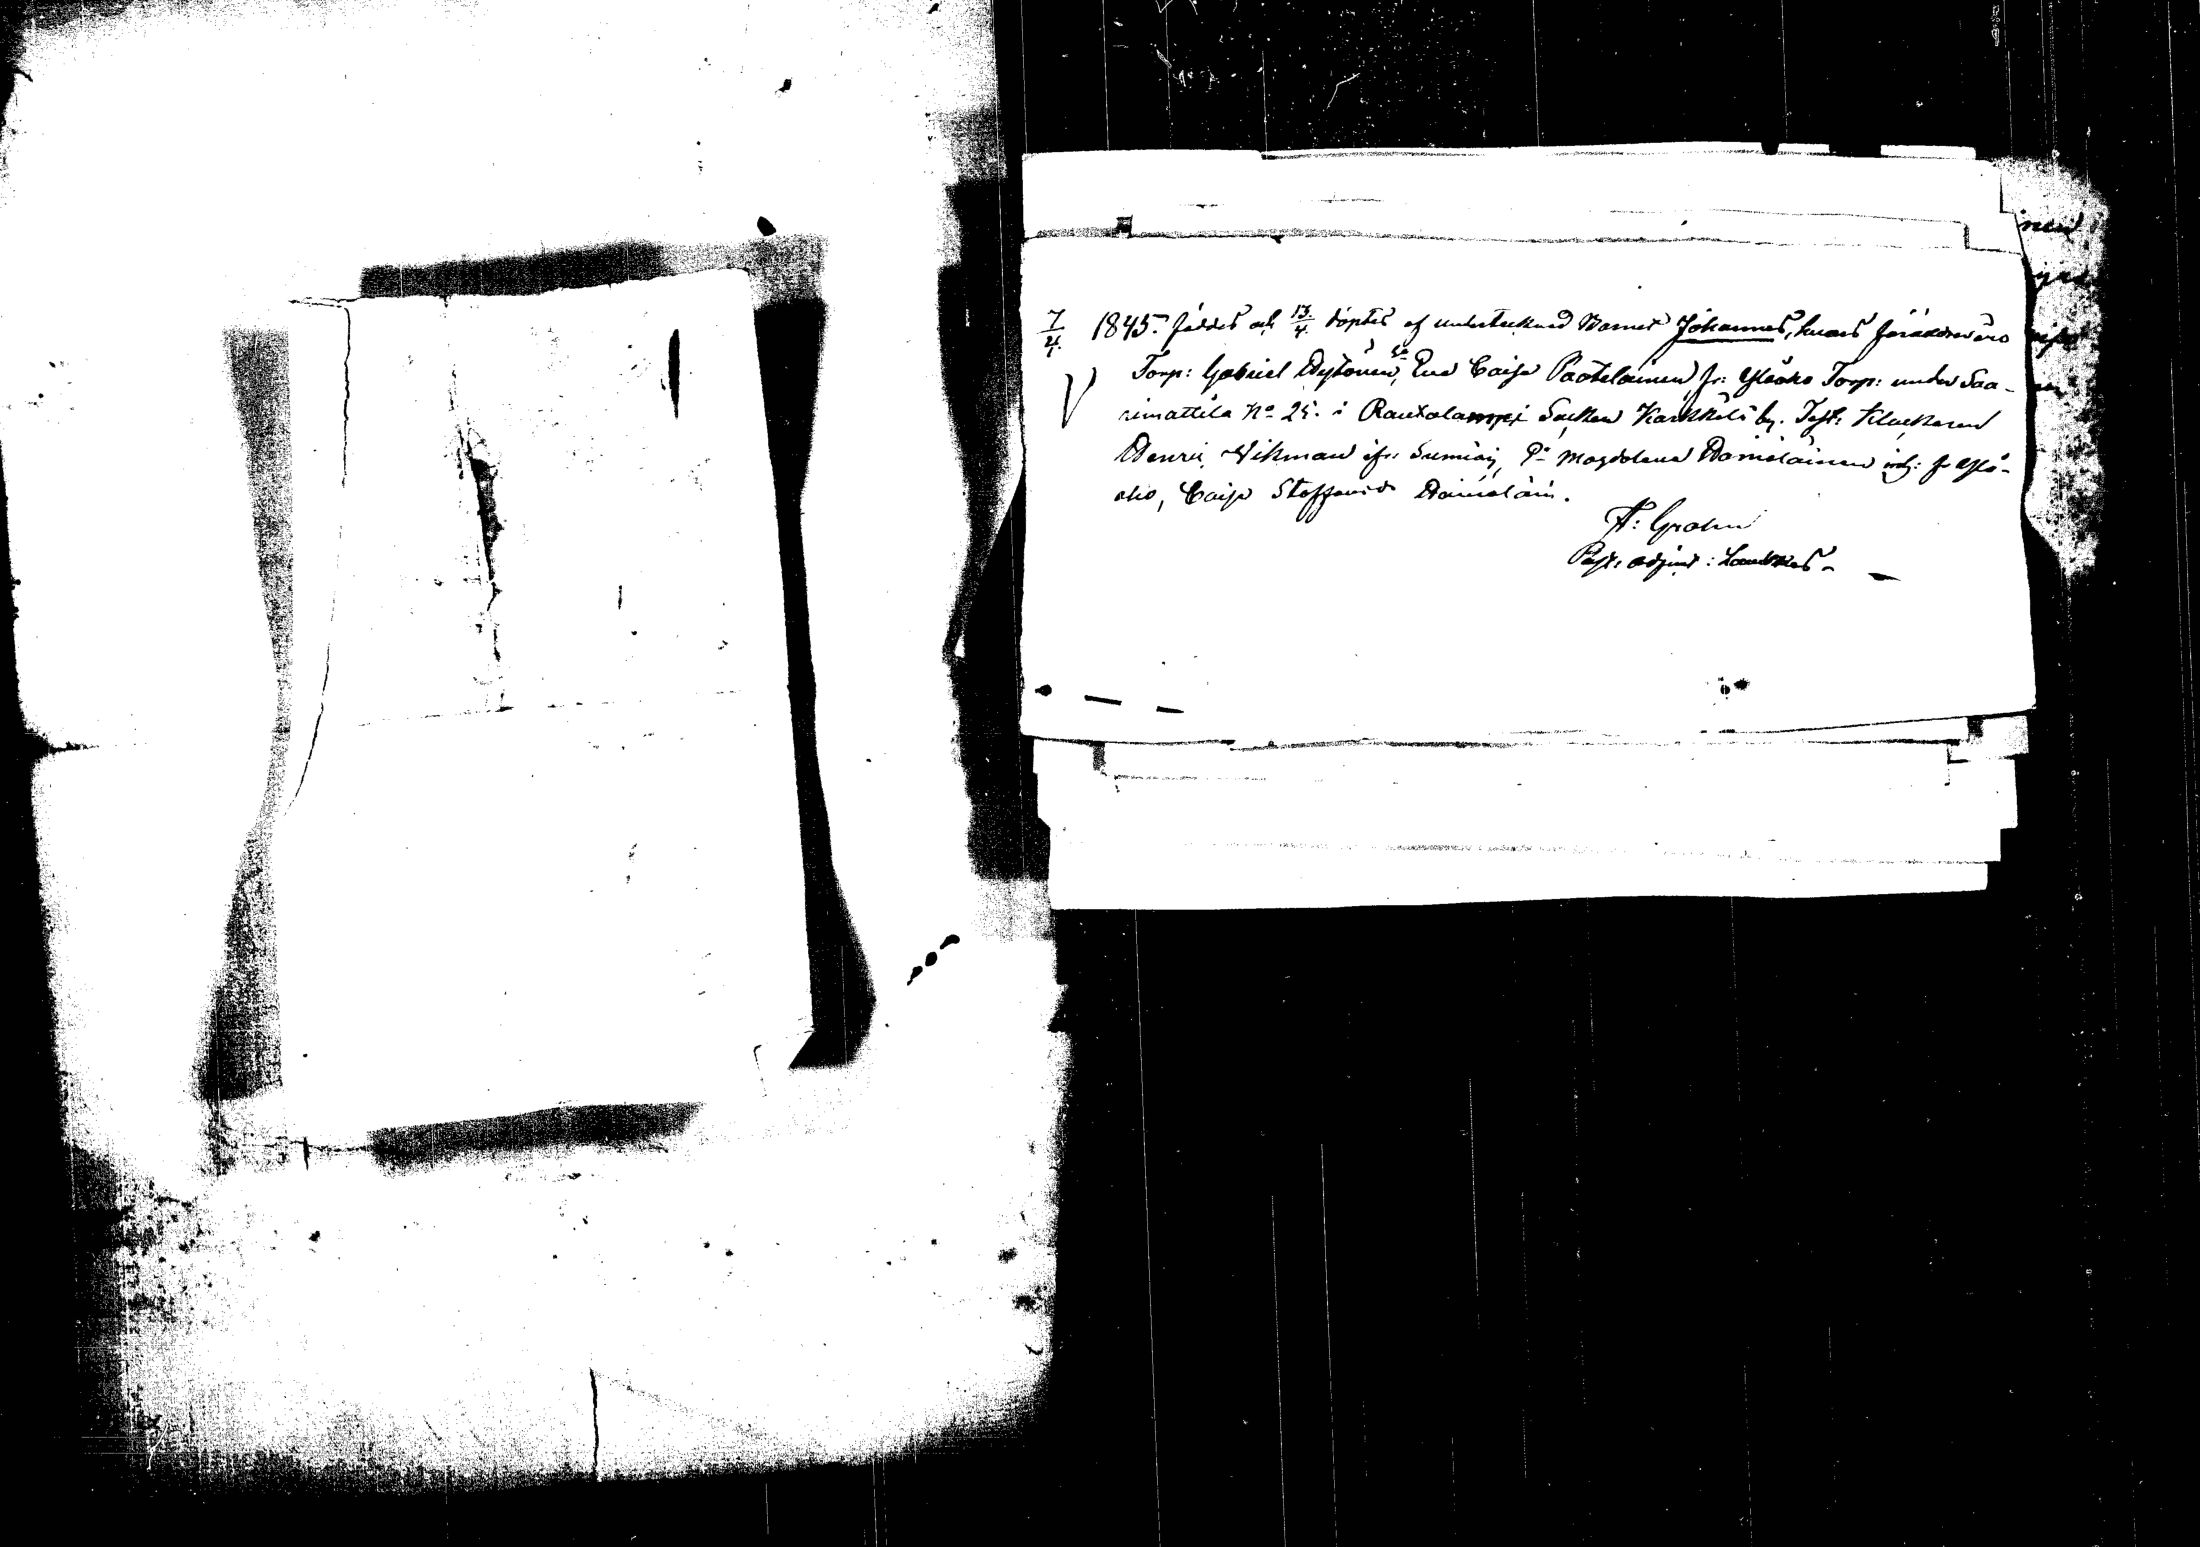 7/4 1845. föddes och 13/4 döptes af undertecknad Barnet Johannes, hvars föräldrar äro
Torp: Gabriel Hytönen, Eva Caisa Paatelainen fr: Yläaho Torp: under Saa-
rimattila No 25. i Rautalampi Socken Karkkila by. Test: Klockaren
Henric Wikman ifr: Sumiais, Magdalena Hämäläinen fr Ylä-
aho, Caisa Staffansdr Hämäläin.
Grahn
Past: adjunct: